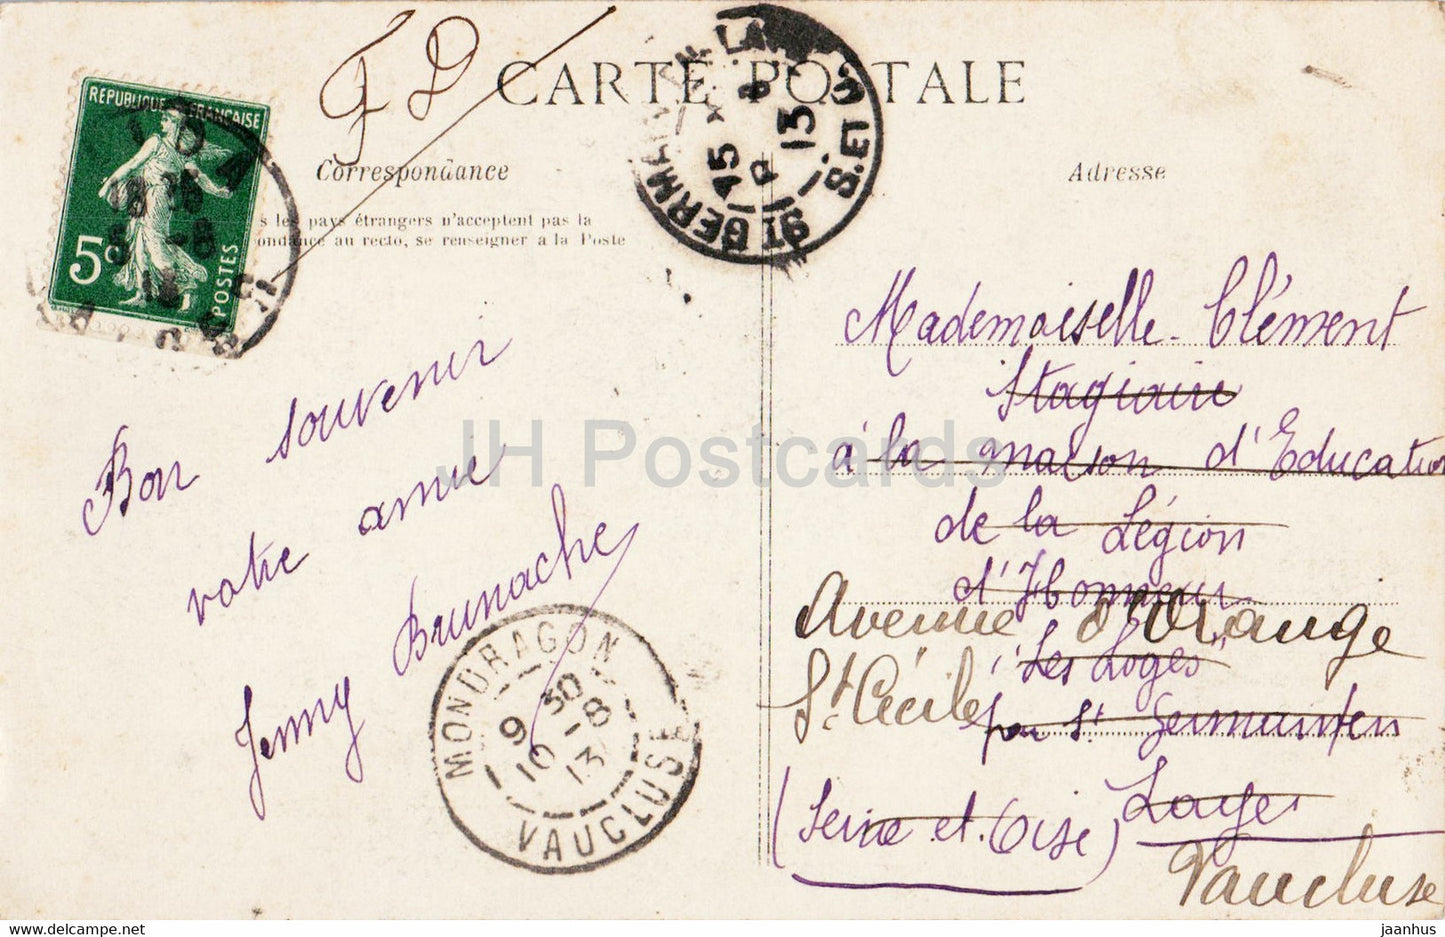 CARTE POSTALE
F D
Correspondance
Adresse
s les pays étrangers n'acceptent pas la
ondance au recto, se renseigner à la Poste
REPUBLIQUE FRANÇAISE
5c
POSTES
ST GERMAIN-EN-LAYE
15
8
13
S. ET O.
Bon souvenir
votre amie
Jenny Brunache
MONDRAGON
9 30
10 -8
13
VAUCLUSE
Mademoiselle Clément
Stagiaire
à la maison d'Education
de la Légion
d'Honneur
Avenue d'Orange
"Les Loges"
St Cécile
par St Germain en
Laye
(Seine et Oise)
Vaucluse
JH Postcards
jaanhus @ www.delcampe.net